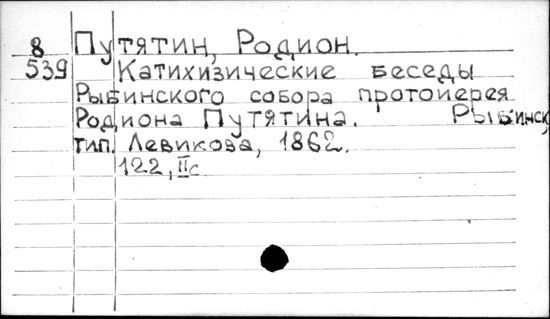 8 Путятин, Родион.
539 Катихизические беседы
Рыбинского собора протоиерея
Родиона Путятина. Рыбинск,
тип. Левикова, 1862.
122, II с